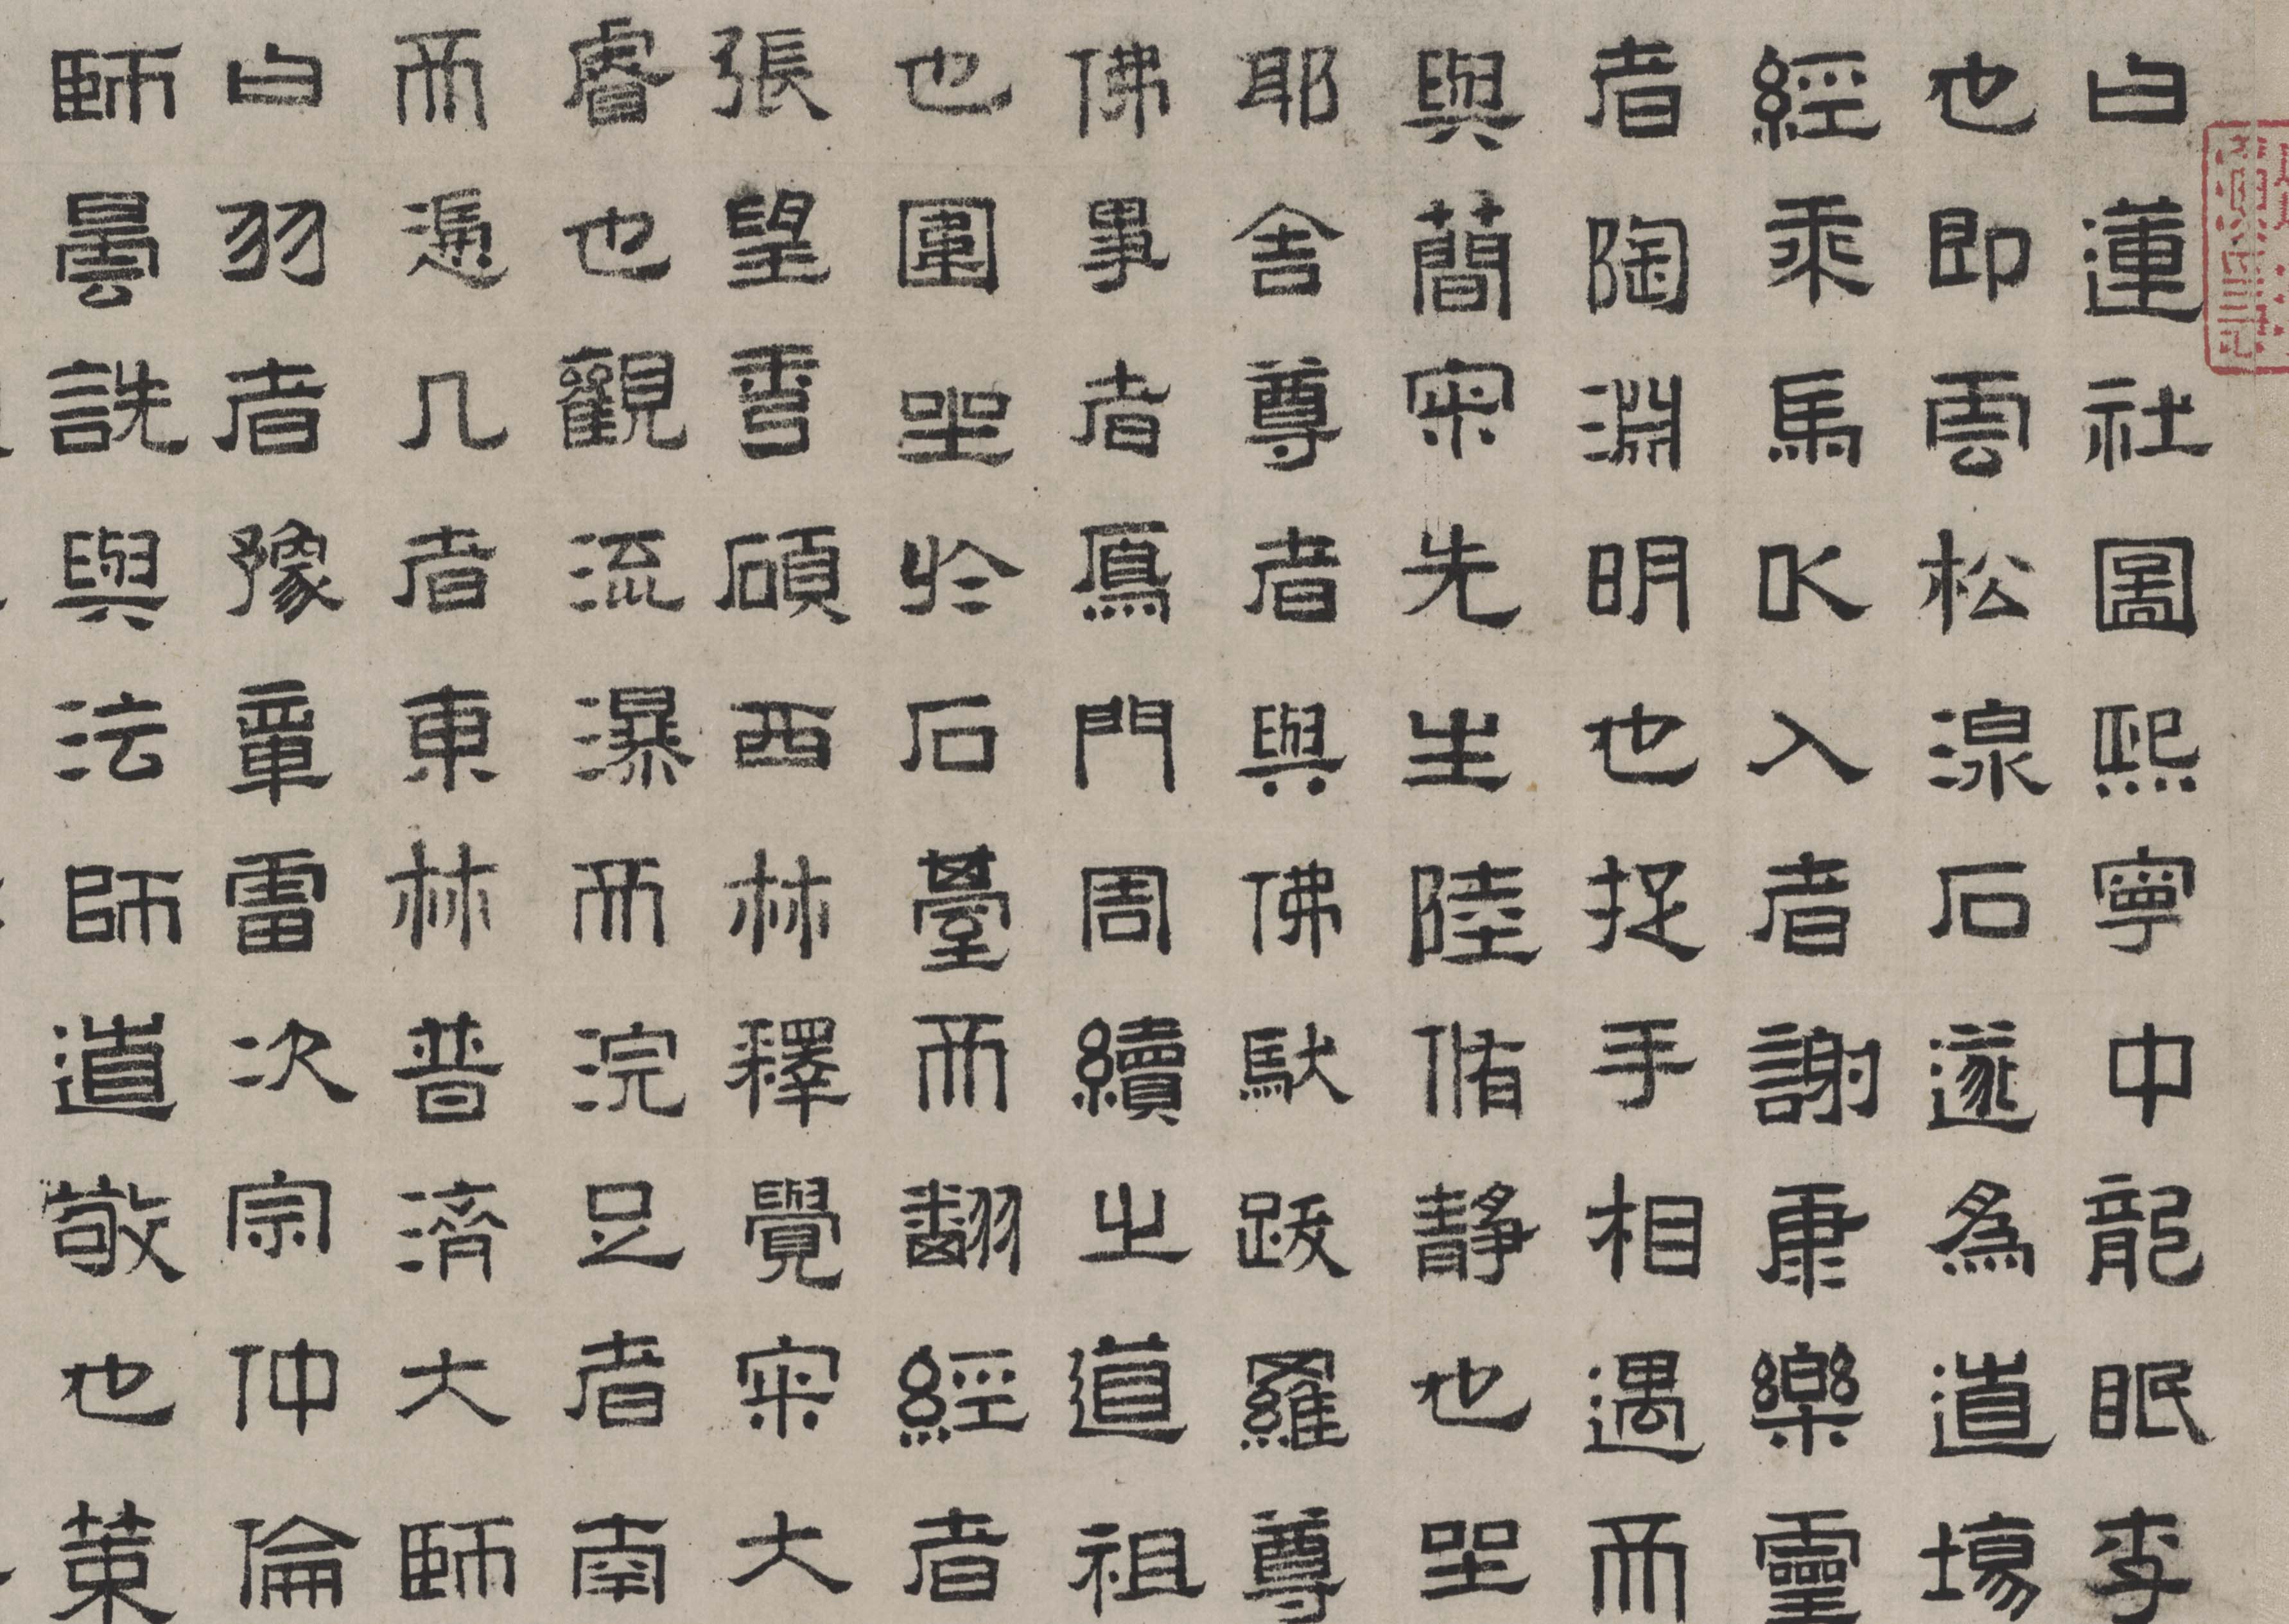 白蓮社圖熙寧中龍眠李
也即雲松湶石遂為道場
經乘馬以入者謝康樂靈
者陶淵明也捉手相遇而
與簡寂先生陸脩靜也坐
耶舍尊者與佛馱跋羅尊
佛事者鴈門周續之道祖
也圍坐於石臺而翻經者
張望秀碩西林釋覺寂大
睿也觀流瀑而浣足者南
而憑几者東林普濟大師
白羽者豫章雷次宗仲倫
師曇詵與法師道敬也策